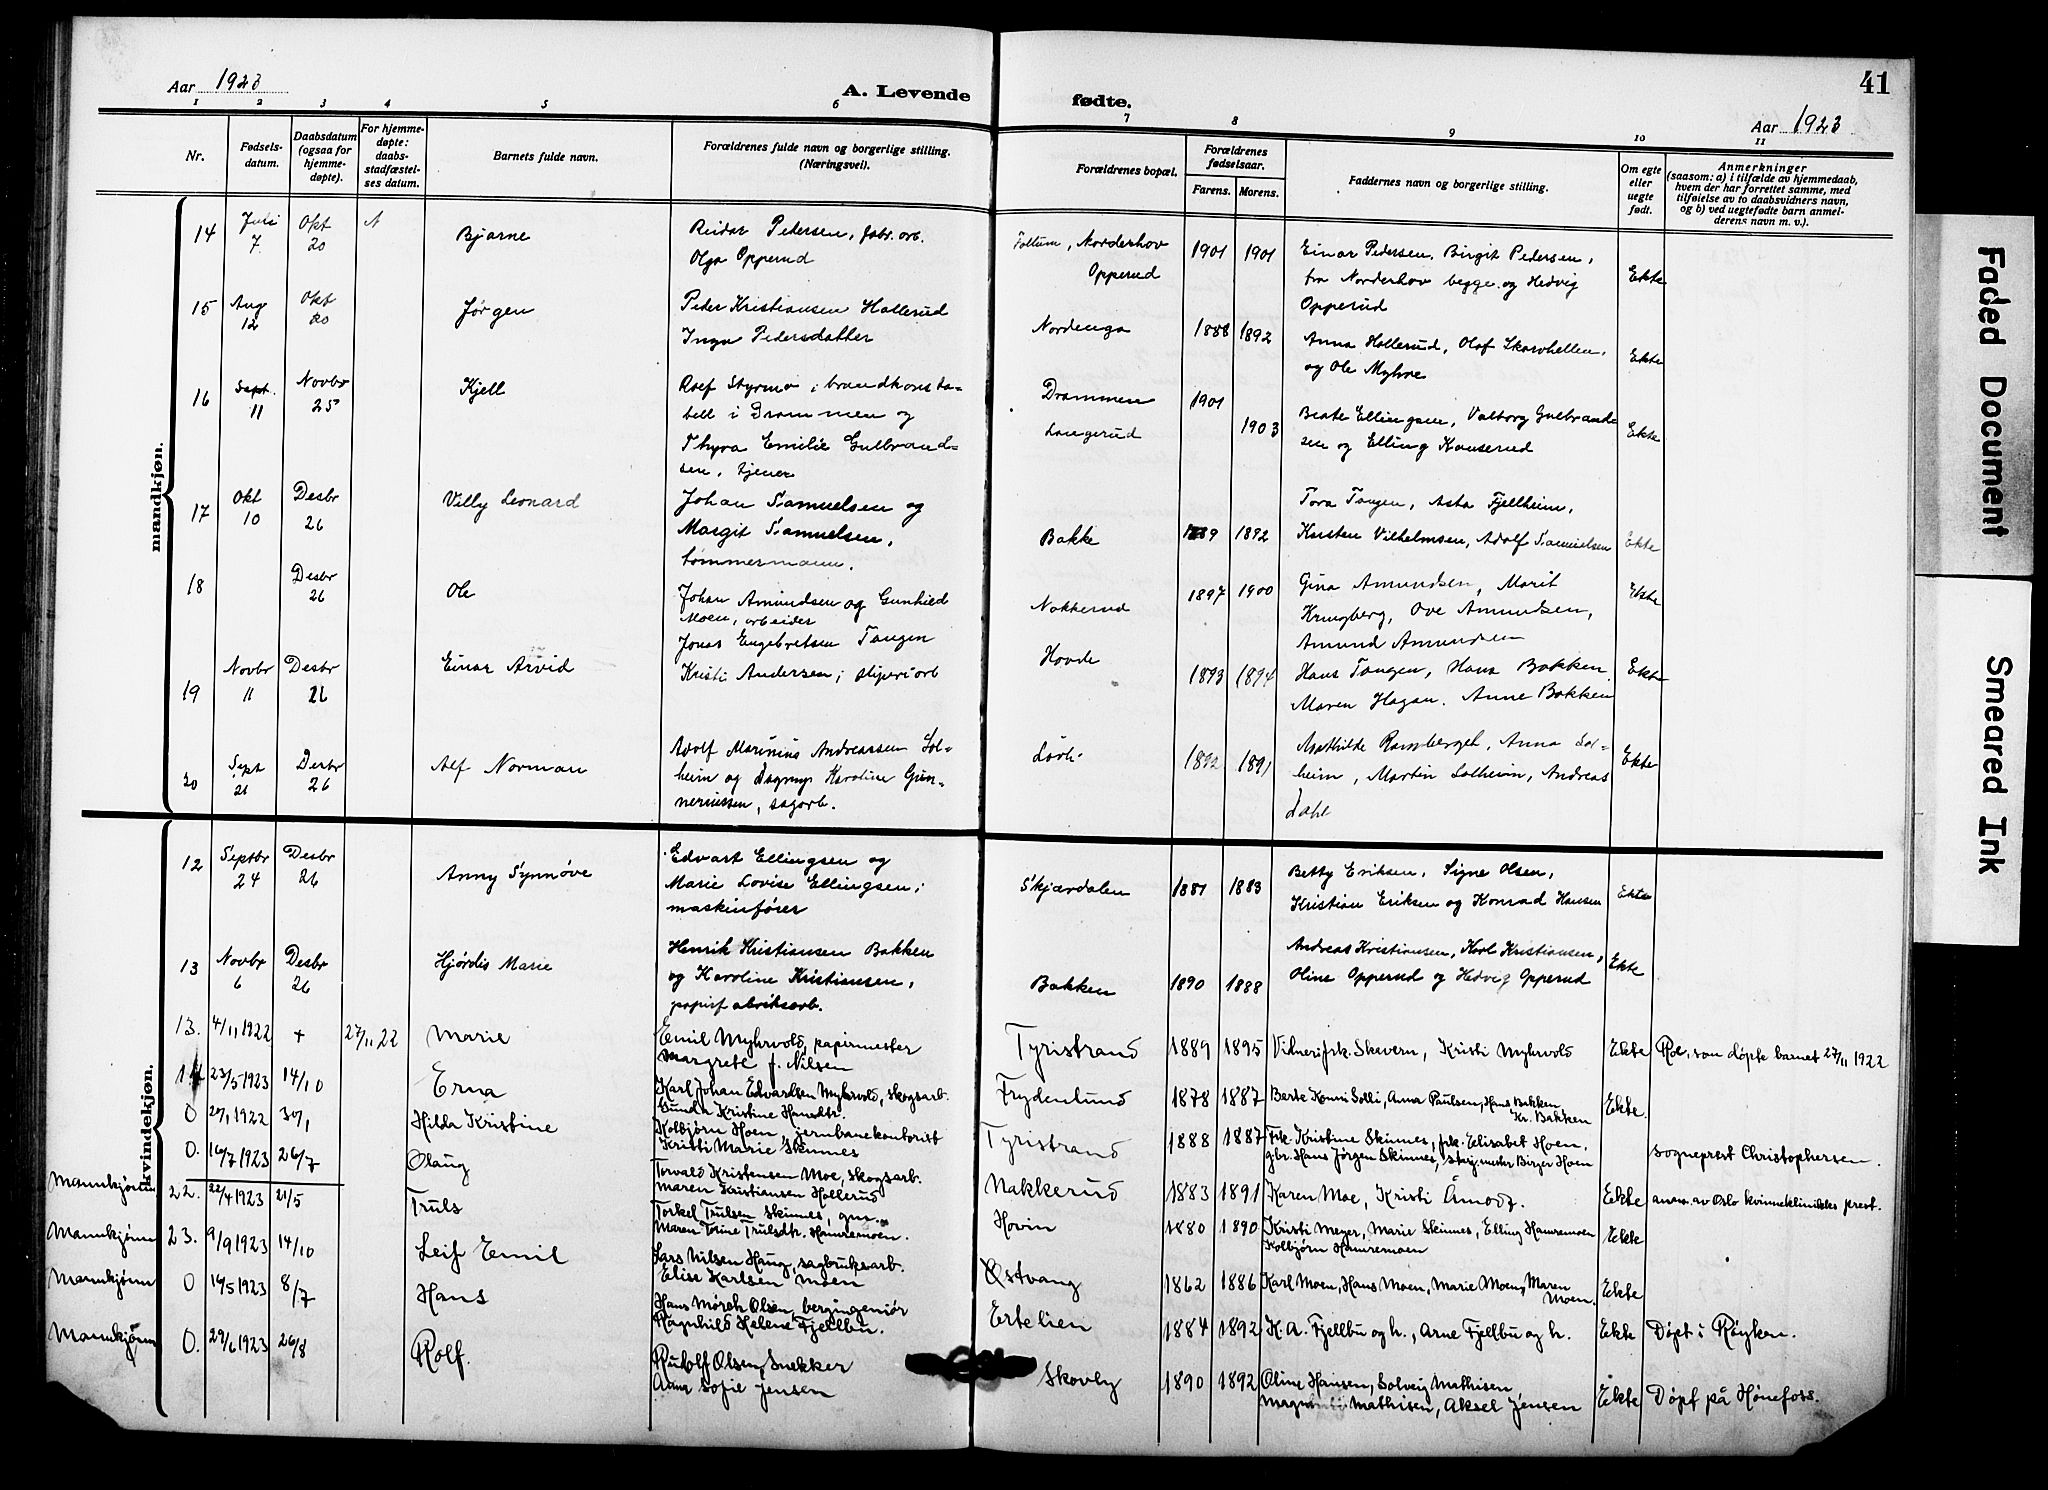 Aar 1923
A. Levende fødte.
41
Aar 1923
1 2 3 4 5 6 7 8 9 10 11
Nr.
Fødsels-
datum.
Daabsdatum
(ogsaa for
hjemme-
døpte).
For hjemme-
døpte:
daabs-
stadfæstel-
ses datum.
Barnets fulde navn.
Forældrenes fulde navn og borgerlige stilling.
(Næringsvei).
Forældrenes bopæl.
Forældrenes
fødselsaar.
Farens. Morens.
Faddernes navn og borgerlige stilling.
Om egte
eller
uegte
født.
Anmerkninger
(saasom: a) i tilfælde av hjemmedaab,
hvem der har forrettet samme, med
tilføielse av to daabsvidners navn,
og b) ved uegtefødte barn anmel-
derens navn m. v.).
mandkjøn.
14 Juli 7 Okt 20 Bjarne
Reidar Pedersen, fabr. arb.
Olga Opperud
Norderhov
Opperud
1901 1901
Einar Pedersen, Birgit Pedersen,
fra Norderhov begge og Hedvig
Opperud
Ekte
15 Aug 12 Okt 20 Jørgen
Peder Kristiansen Hallerud
Inga Pedersdatter
Nordenga
1888 1892
Anna Hallerud, Olaf Skarvhellen,
og Ole Myhre
Ekte
16 Sept. 11 Novbr 25 Kjell
Roef Styrmo, brandkonsta-
bell i Drammen og
Thyra Emilie Gulbrand-
sen, tjener
Drammen
Langerud
1901 1903
Beate Ellingsen, Valborg Gulbrand-
sen og Elling Hanserud
Ekte
17 Okt 10 Desbr 26 Villy Leonard
Johan Samuelsen og
Margit Samuelsen,
tømmermann.
Bakke
1889 1892
Tora Tangen, Asta Fjellheim,
Kristen Vilhelmsen, Adolf Samuelsen
Ekte
18 Desbr 26 Ole
Johan Amundsen og Gunhild
Moen, arbeider
Nakkerud
1897 1900
Gina Amundsen, Marit
Kringberg, Ove Amundsen,
Amund Amundsen
Ekte
19 Novbr 11 Desbr 26 Einar Arvid
Jonas Engebretsen Tangen
Kristi Andersen; sliperiarb
Hovde
1893 1894
Hans Tangen, Hans Bakken
Maren Hagan. Anne Bakken
Ekte
20 Sept 21 Desbr 26 Alf Norman
Adolf Marinius Andreassen Sol-
heim og Dagny Karoline Gun-
neriussen, sagarb.
1892 1891
Mathilde Ramberget, Anna Sol-
heim, Martin Solheim, Andreas
Dahl
Ekte
kvindekjøn.
12 Septbr 24 Desbr 26 Anny Synnøve
Edvart Ellingsen og
Marie Lovise Ellingsen;
maskinfører
Skjærdalen
1881 1883
Betty Eriksen, Signe Olsen,
Kristian Eriksen og Konrad Hansen
Ekte
13 Novbr 6 Desbr 26 Hjørdis Marie
Henrik Kristiansen Bakken
og Karoline Kristiansen,
papirfabriksarb.
Bakken
1890 1888
Andreas Kristiansen, Karl Kristiansen,
Oline Opperud og Hedvig Opperud
Ekte
13. 4/11 1922 + 27/11 22 Marie
Emil Myhrvold, papirmester
Margrete f. Nilsen
Tyristrand
1889 1895
Vidner: frk. Skevern, Kristi Myhrvold
Ekte
Roe, som døpte barnet 27/11 1922
14 23/5 1923 14/10 Erna
Karl Johan Edvardsen Myhrvold, skogsarb.
Gunda Kristine Hansdtr.
Frydenlund
1878 1887
Berte Konni Solli, Anna Paulsen, Hans Bakken
Kr. Bakken
Ekte.
0 20/1 1922 30/1 Hilda Kristine
Kolbjørn Hoen, jernbanekontorist
Kristi Marie Skinnes
Tyristrand
1888 1887
Frk. Kristine Skinnes, frk. Elisabet Hoen,
gbr. Hans Jørgen Skinnes, Birger Hoen
sogneprest Christophersen.
0. 16/7 1923 26/7 Olaug
Torvald Kristensen Moe, skogsarb.
Maren Kristiansen Hollerud
Nakkerud
1883 1891
Karen Moe, Kristi Åmodt.
Ekte
anm. av Oslo kvinneklinikks prest.
Mannkjønn 22. 22/4 1923 21/5 Truls
Torkel Trulsen Skinnes, gm.
Maren Torine Trulsdtr. Hamremoen.
Hovin
1880 1890
Kristi Meyer, Marie Skinnes, Elling Hamremoen
Kolbjørn Hamremoen
Ekte
Mannkjønn 23. 9/9 1923 14/10 Leif Emil
Lars Nilsen Haug, sagbruksarb.
Elise Karlsen Moen
Østvang
1862 1886
Karl Moen, Hans Moen, Marie Moen, Maren
Moen.
Ekte
Mannkjønn 0 16/5 1923 8/7 Hans
Hans Mørch Olsen, bergingeniør
Ragnhild Helene Fjellbu.
Ertelien
1884 1892
K. A. Fjellbu og h., Arne Fjellbu og h.
Ekte
Døpt i Røyken.
Mannkjønn 0. 29/6 1923 26/8 Rolf.
Rudolf Olsen, Snekker
Anna Sofie Jensen
Skovly
1890 1892
Oline Hansen, Solveig Mathisen,
Mathisen, Aksel Jensen
Ekte
Døpt på Hønefoss.
Faded Document
Smeared Ink